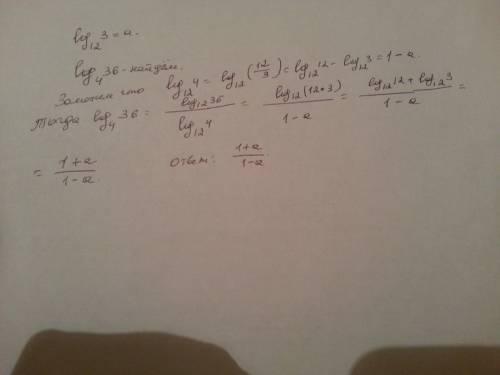 log₁₂3 = a.
log₄36 - найдём.
Заметим что log₁₂4 = log₁₂(12/3) = log₁₂12 - log₁₂3 = 1 - a.
Тогда log₄36 = log₁₂36 / log₁₂4 = log₁₂(12*3) / 1 - a = log₁₂12 + log₁₂3 / 1 - a =
= 1+a / 1-a. ответ: 1+a / 1-a.